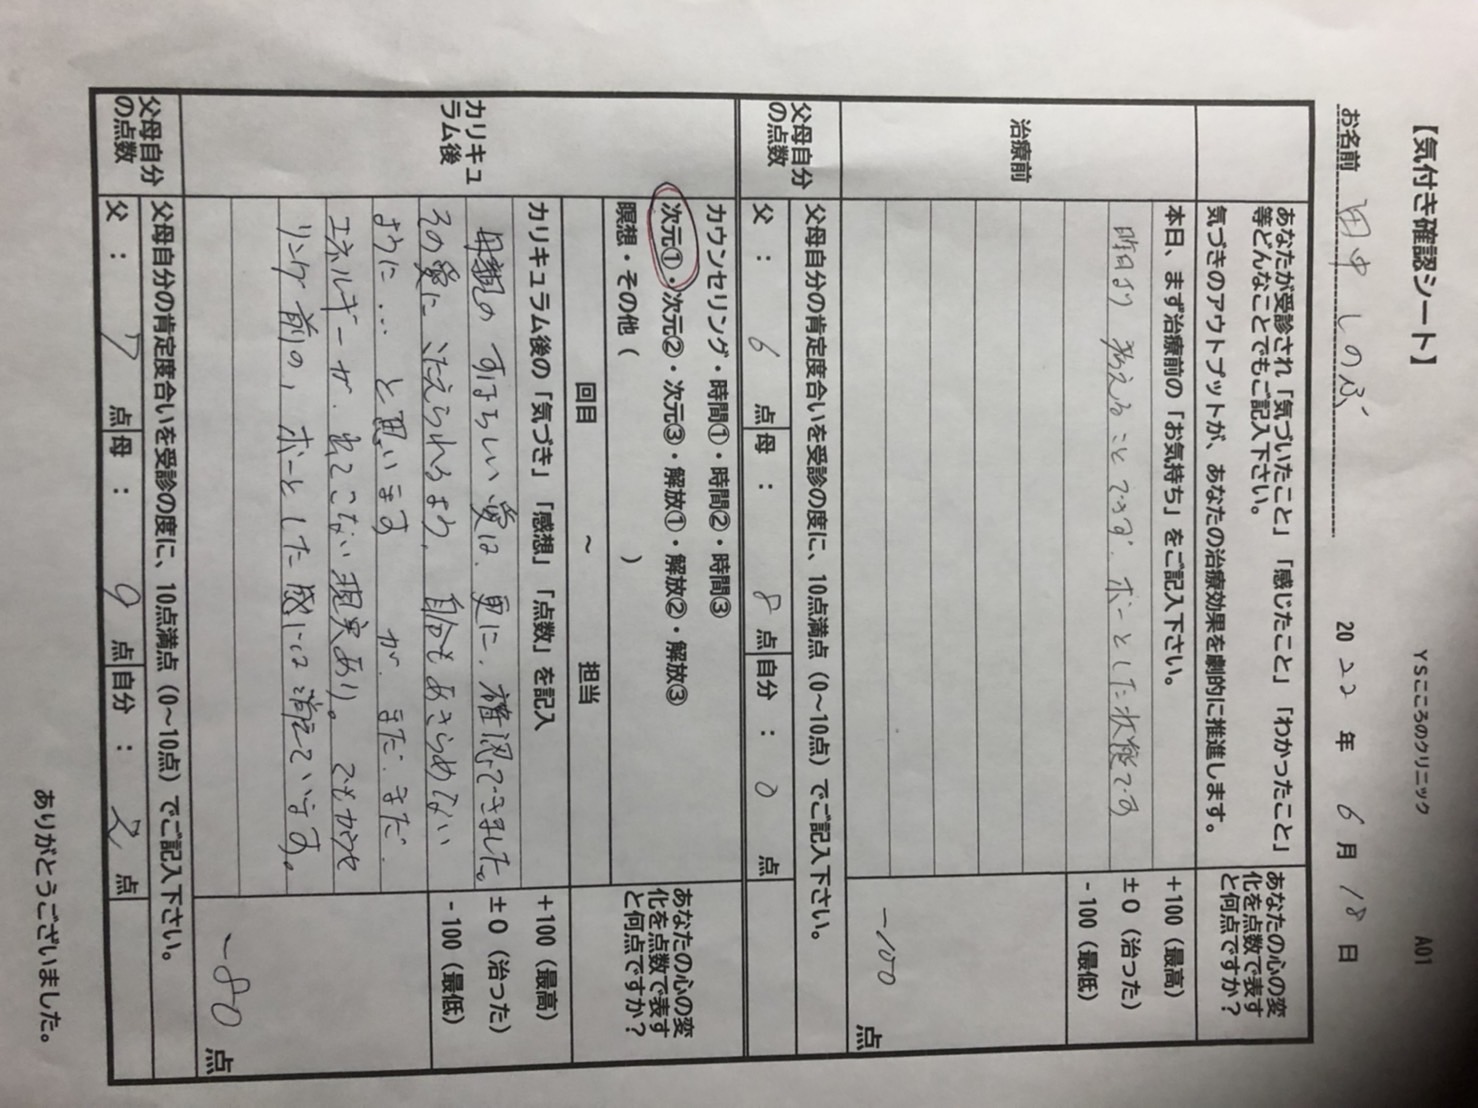 【気付き確認シート】 YSこころのクリニック A01
お名前 田中 しのぶ 2022年 6月 18日
あなたが受診され「気づいたこと」「感じたこと」「わかったこと」
等どんなことでもご記入下さい。
気づきのアウトプットが、あなたの治療効果を劇的に推進します。
あなたの心の変
化を点数で表す
と何点ですか?
治療前
本日、まず治療前の「お気持ち」をご記入下さい。
昨日より 考えることできず、ボーとした状態です
+100(最高)
±0(治った)
-100(最低)
-100
点
父母自分
の点数
父母自分の肯定度合いを受診の度に、10点満点(0~10点)でご記入下さい。
父: 6 点 母: 8 点 自分: 0 点
カリキュ
ラム後
カウンセリング・時間①・時間②・時間③
次元①・次元②・次元③・解放①・解放②・解放③
瞑想・その他( )
あなたの心の変
化を点数で表す
と何点ですか?
回目 ~ 担当
カリキュラム後の「気づき」「感想」「点数」を記入
母親の すばらしい愛は、更に、確認できました。
その愛に こたえられるよう、自分もあきらめない
ように… と思います が、まだ、まだ、
エネルギーが、出てこない現実あり。でもカウンセ
リング前の、ボーとした感じは消えています。
+100(最高)
±0(治った)
-100(最低)
-80
点
父母自分
の点数
父母自分の肯定度合いを受診の度に、10点満点(0~10点)でご記入下さい。
父: 7 点 母: 9 点 自分: 2 点
ありがとうございました。